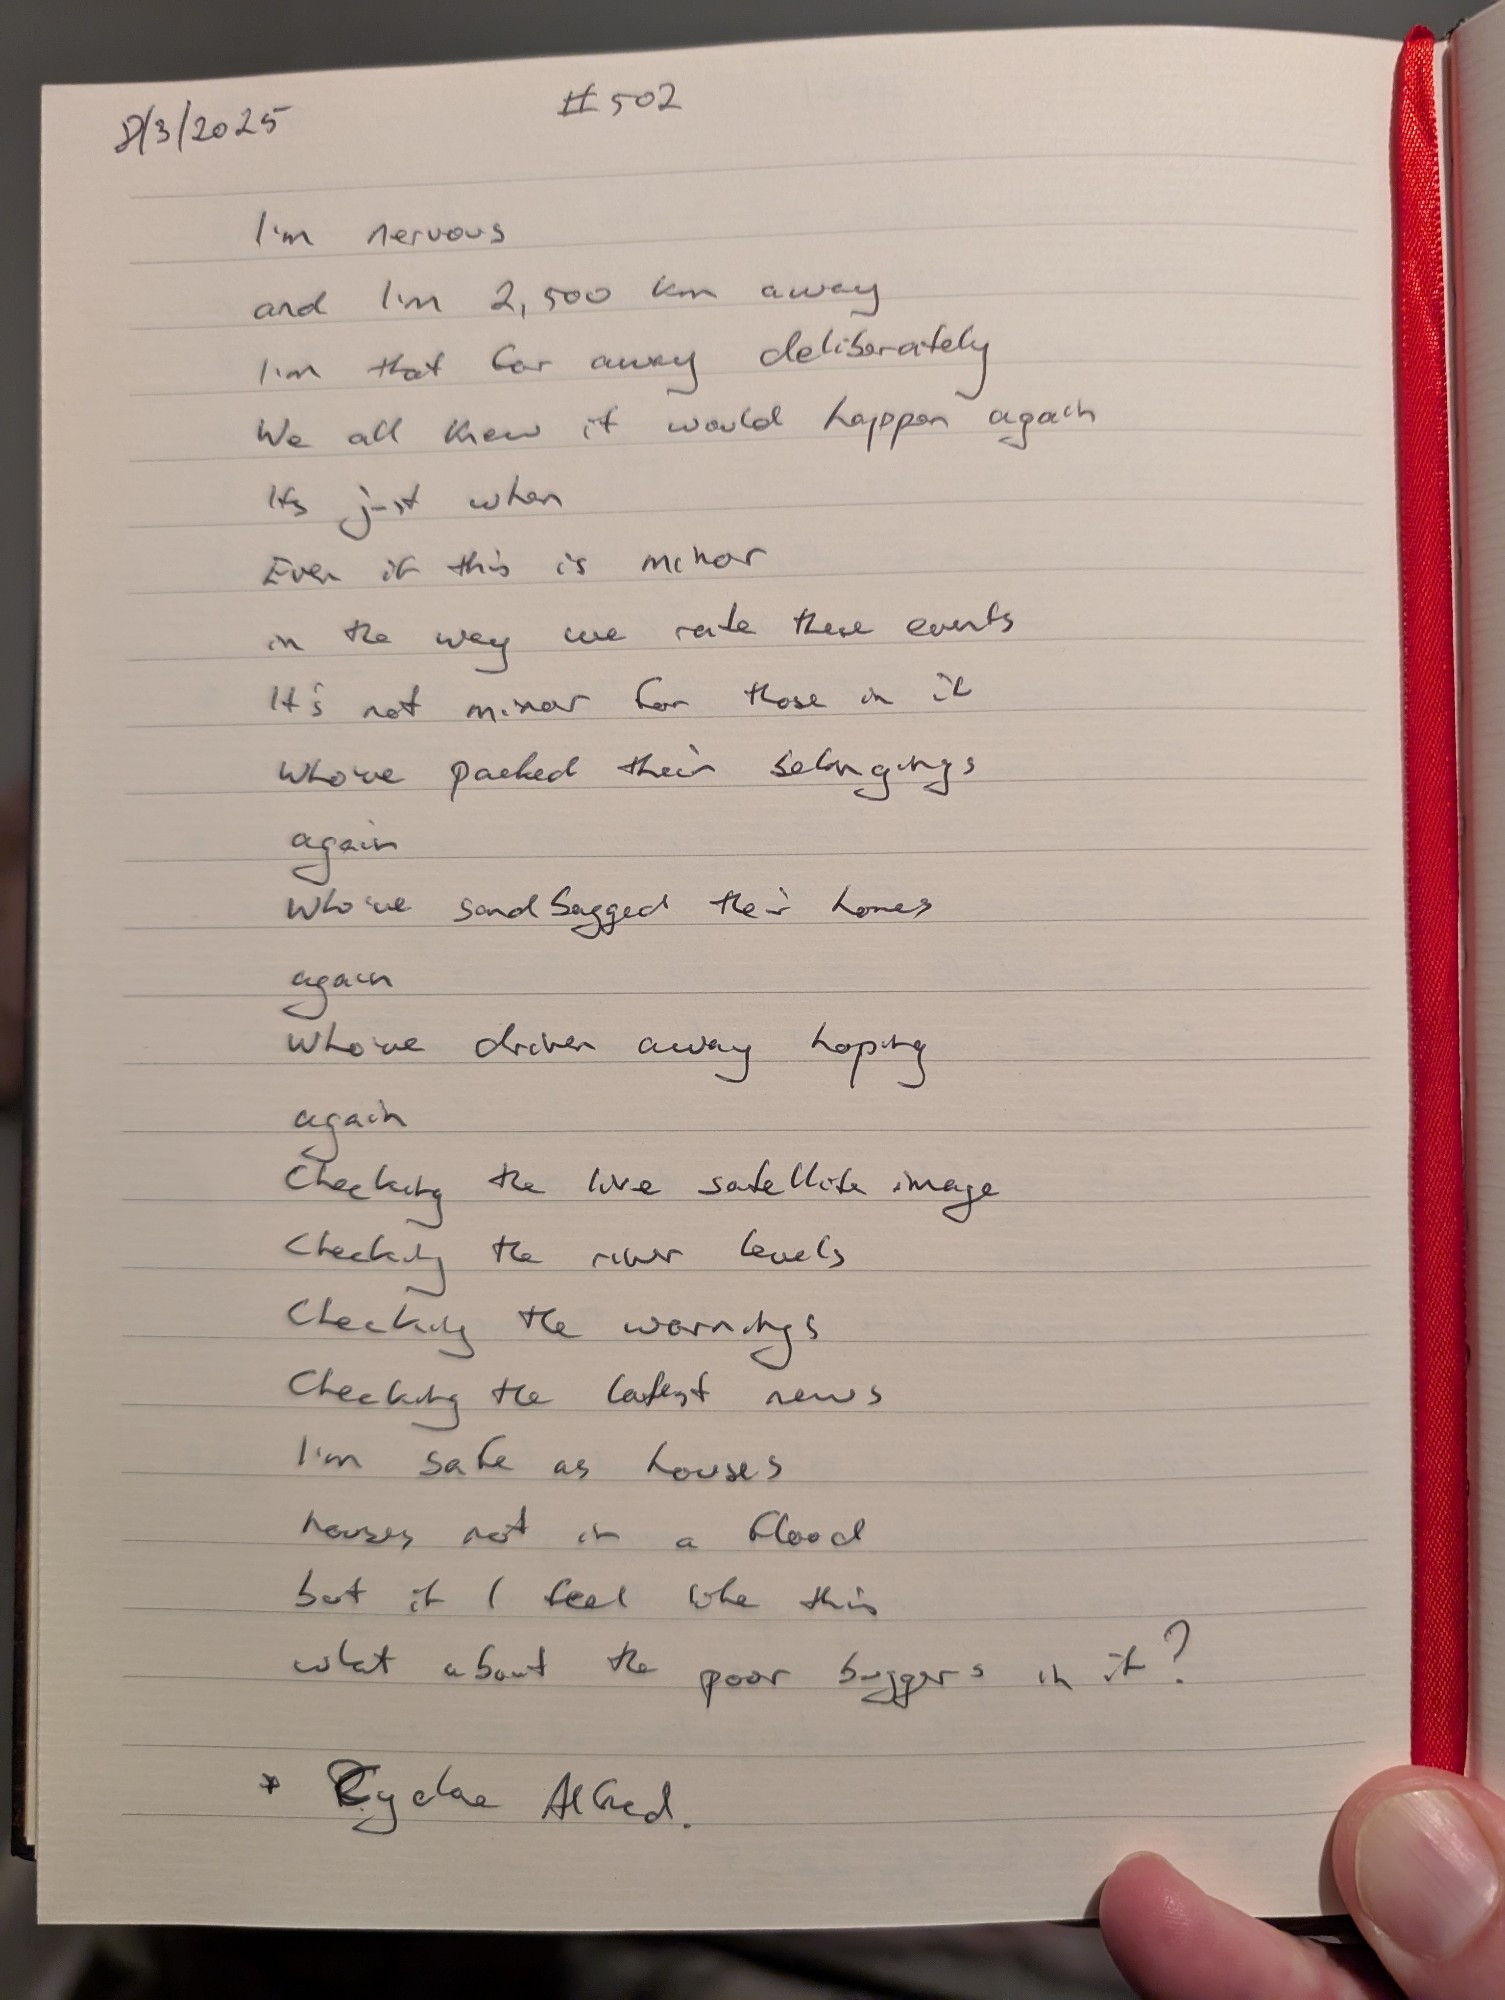 8/3/2025
#502
I'm nervous
and I'm 2,500 km away
I'm that far away deliberately
We all knew it would happen again
Its just when
Even if this is minor
in the way we rate these events
It's not minor for those in it
Who've packed their belongings
again
Who've sandbagged their homes
again
Who've driven away hoping
again
Checking the live satellite image
Checking the river levels
Checking the warnings
Checking the latest news
I'm safe as houses
houses not in a flood
but if I feel like this
what about the poor buggers in it?
* Cyclone Alfred.